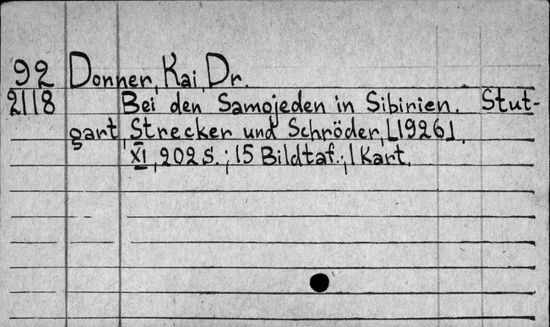 92 Donner, Kai, Dr.
2118 Bei den Samojeden in Sibirien. Stut-
gart, Strecker und Schröder, [1926].
XI, 202 S.; 15 Bildtaf.; 1 Kart.